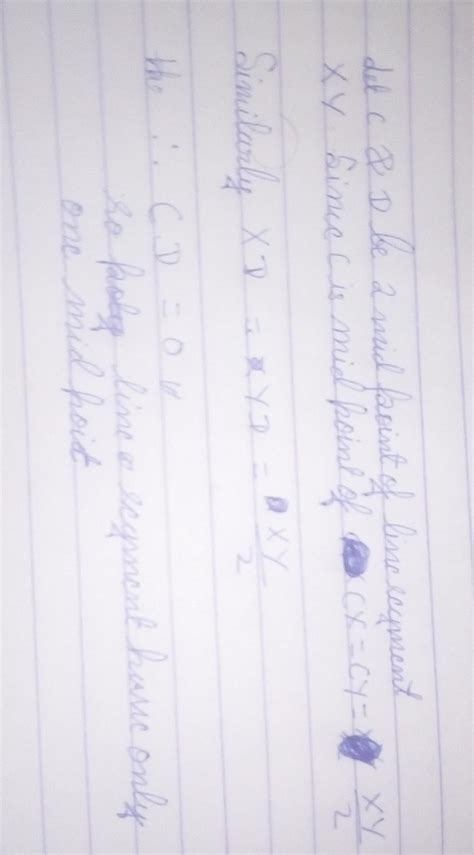 Let C & D be 2 mid point of line segment
XY. Since C is mid point of CX = CY = XY/2
Similarly XD = YD = XY/2
the ∴ CD = 0
So line a segment have only
one mid point